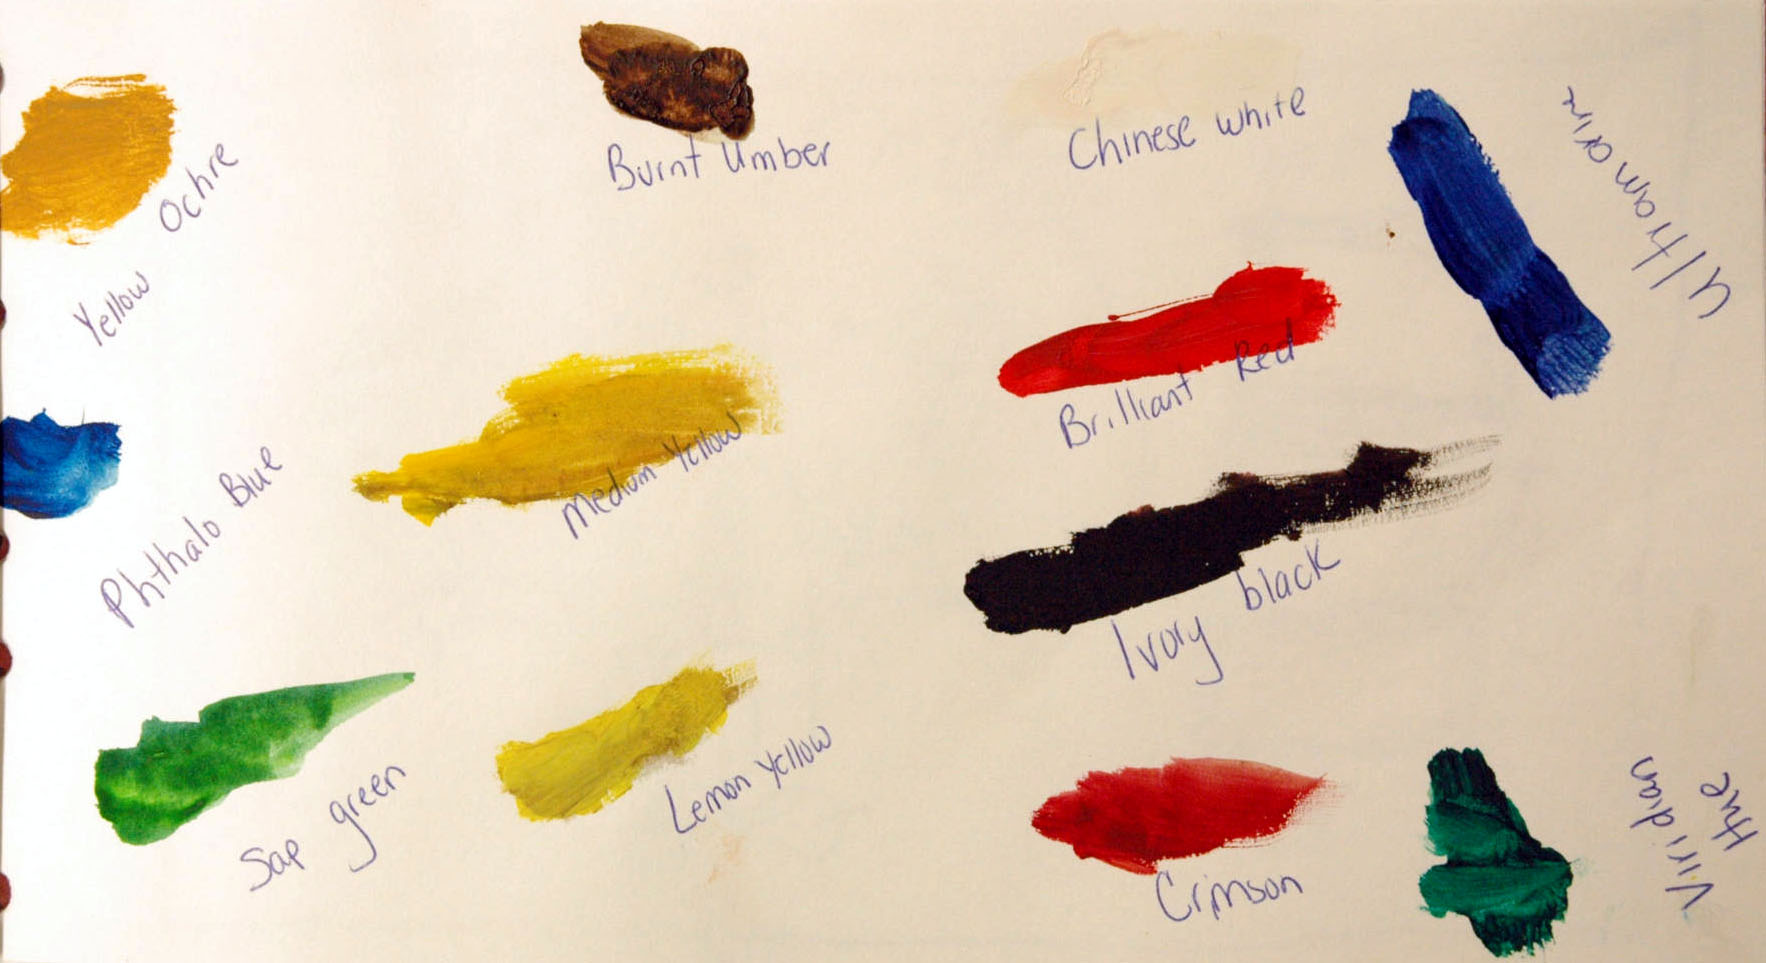 Yellow Ochre
Burnt Umber
Chinese white
Ultramarine
Phthalo Blue
Medium Yellow
Brilliant Red
Ivory black
Sap green
Lemon Yellow
Crimson
Viridian
Hue